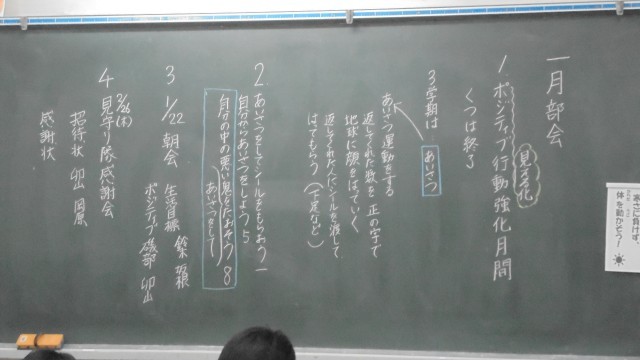 一月部会
1. ポジティブ行動強化月間
見える化
くつは終了
3学期は あいさつ
あいさつ運動をする
返してくれた数を正の字で
地球に顔をはっていく
返してくれた人にシールを渡して
はてもらう(下足など)
2 あいさつをしてシールをもらおう 一
自分からあいさつをしよう 5
自分の中の悪い鬼をたおそう 8
あいさつをして
3 1/22 朝会 生活目標 鈴木
ポジティブ 磯部
4 見守り隊感謝会
2/26(木)
招待状
感謝状
寒さに負けず、
体を動かそう!